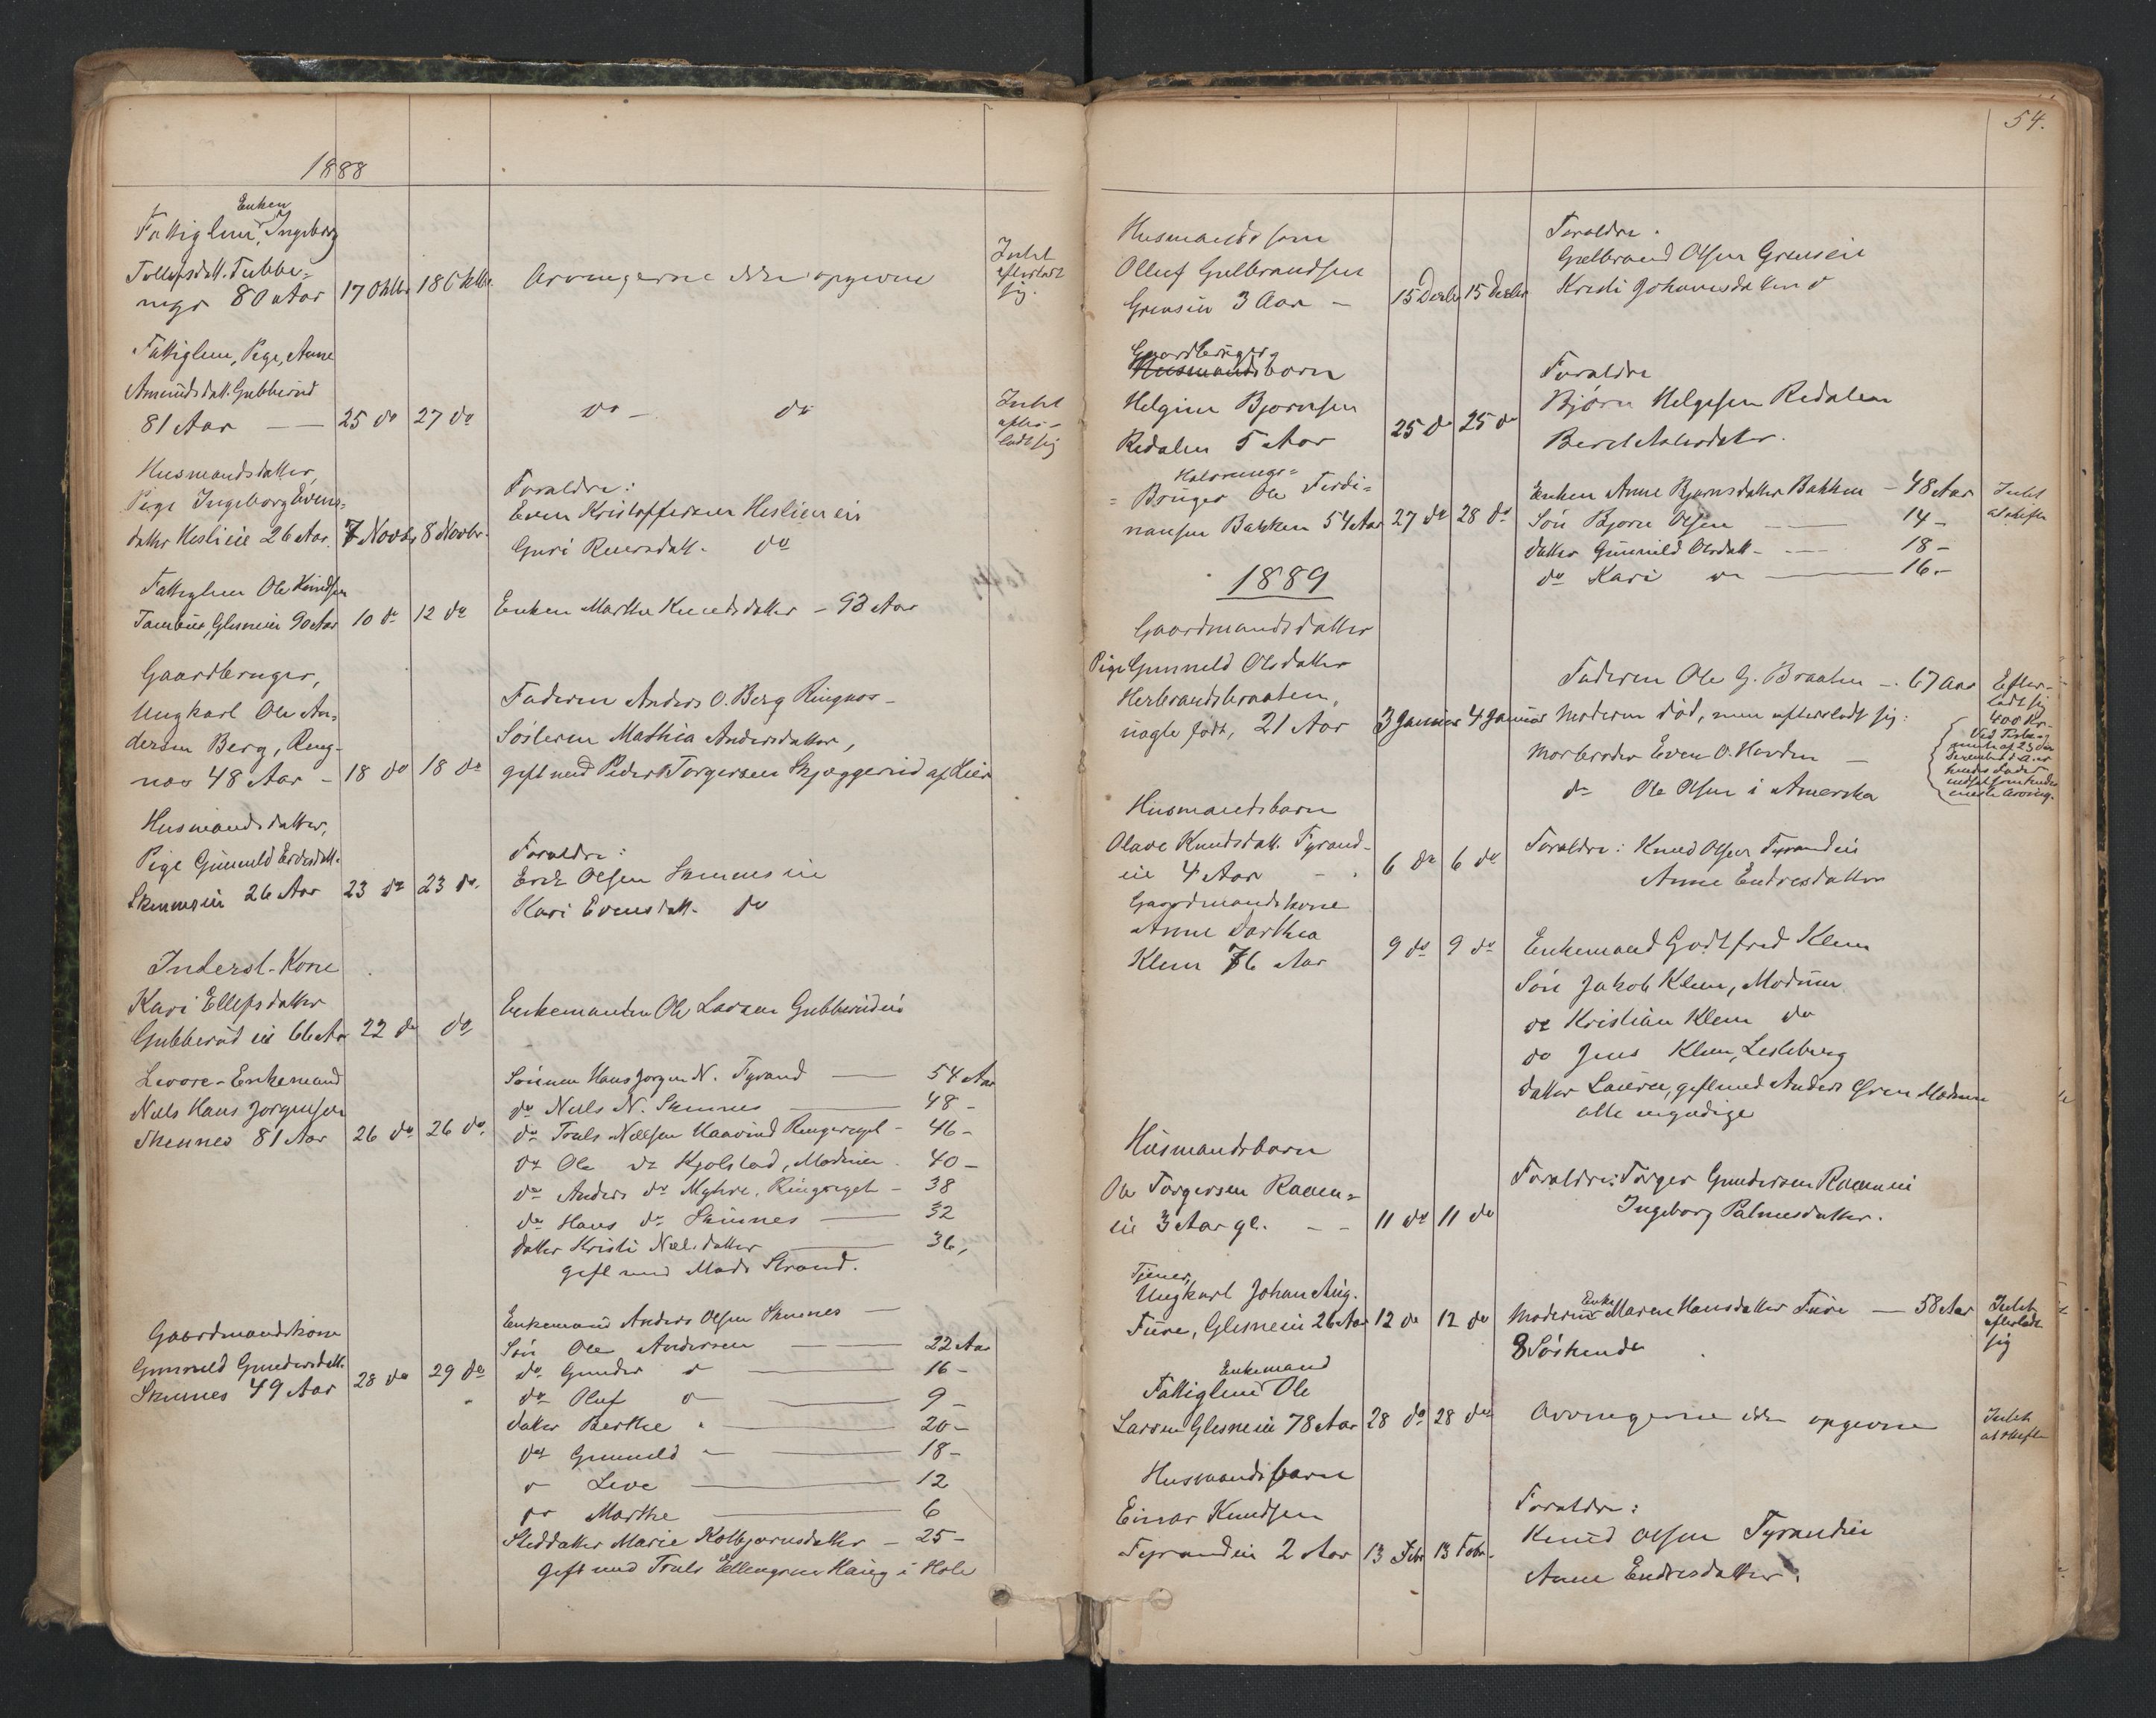 1888
Enken
Fattiglem, Ingeborg
Tollefsdatt. Tubbe-
80 Aar 17 Oktbr 18 Oktbr. Arvingerne ikke opgivne Intet
efterladt
sig.
Fattiglem, Pige, Anne
Amundsdatt. Gubberud
81 Aar — — 25 do 27 do do — do Intet
efter-
ladt sig
Husmandsdatter,
Pige Ingeborg Evens-
datter Heslieie 26 Aar. 7 Novbr 8 Novbr.
Foraldre:
Even Kristoffersen Heslien eie
Guri Reiersdatt. do
Fattiglem Ole Knudsen
Glesneie 90 Aar 10 do 12 do Enken Marthe Knudsdatter – 93 Aar
Gaardbruger,
Ungkarl Ole An-
dersen Berg, Ring-
nos 48 Aar – 18 do 18 do
Faderen Anders O. Berg Ringnos –
Søsteren Mathia Andersdatter,
gift med Peder Torgersen Skjæggerud af Lier
Husmandsdatter,
Pige Gunneld Ericsdatt.
Skinneseie 26 Aar 23 do 23 do.
Foraldre:
Erik Olsen Skinneseie
Kari Evensdatt. do
Inderst-Kone
Kari Ellefsdatter
Gubberud eie 66 Ar 22 do do Enkemanden Ole Larsen Gubberudeie
Enkemand
Niels Hans Jørgensen
Skinnes 81 Aar 26 do 26 do.
Sønnen Hans Jørgen N. Tyrand — 54 Aar
do Niels N. Skinnes — 48 –
do Truls Nielsen Ringerige – 46 –
do Ole do Kjølstad, Modum. 40 –
do Anders do Myhre, Ringerige – 38
do Hans do Skinnes — 32
Datter Kristi Nielsdatter — 36,
gift med Mads Strand.
Gaardmandskone
Gunneld Gundersdatt.
Skinnes 49 Aar 28 do 29 do
Enkemand Anders Olsen Skinnes —
Søn Ole Andersen — — 22 Aar
do Gunder do — 16 –
do Oluf do — 9 –
Datter Berthe " — 20 –
do Gunneld " — 18 –
" Live — 12
do Marthe — 6
Steddatter Marie Kolbjørnsdatter – 25 –
gift med Truls Ellingsen Haug i Hole
54.
Husmandssøn
Olluf Gulbrandsen
Grenseie 3 Aar – 15 Decbr 15 Decbr
Foraldre.
Gulbrand Olsen Grenseie
Kristi Johannesdatter do
Gaardbruger-
Husmandsbarn
Helgine Bjørnsen
Redalen 5 Aar 25 do 25 do
Foraldre
Bjørn Helgesen Redalen
Berit Aslesdatter.
Bruger Ole Ferdi-
nansen Bakken 54 Aar 27 do 28 do
Enken Anne Bjørnsdatter Bakken – 48 Aar Intet
at skifte
Søn Bjørn Olsen — — 14 –
Datter Gunnild Olsdatt – — 18 –
do Kari do — 16 –
1889
Gaardmandsdatter
Pige Gunneld Olsdatter
Herbrandsbraaten,
uægte født, 21 Aar 3 Januar 4 Januar
Faderen Ole G. Braaten –. 67 Aar Efter-
ladt sig
400 Kr.
Moderen død, men efterladt sig:
Morbroder Even O. Horden —
do Ole Olsen i Amerika
Husmandsbarn
Olave Knudsdatt. Tyrand-
eie 4 Aar – . 6 do 6 do
Foraldre: Knud Olsen Tyrandeie
Anne Endresdatter
Gaardmandskone
Anne Dorthea
Klem 76 Aar 9 do 9 do
Enkemand Godtfred Klem
Søn Jakob Klem, Modum
do Kristian Klem do
do Jens Klem,
Datter Laura, gift med Anders Gren Modum
alle myndige
Husmandsbarn
Ole Torgersen Raaen-
eie 3 Aar gl. – – 11 do 11 do
Foraldre: Torger Gundersen Raaeneie
Ingeborg Palmesdatter.
Tjener,
Ungkarl Johan Aug.
Fure, Glesneeie 26 Aar 12 do 12 do
Enke
Moderen Maren Hansdatter Fure — 58 Aar Intet
efterladt
sig
8 Søskende
Enkemand
Fattiglem Ole
Larsen Glesneeie 78 Aar 28 do 28 do
Arvingerne ikke opgivne Intet
at skifte
Husmandsbarn
Einar Knudsen
Tyrandeie 2 Aar 13 Febr 13 Febr.
Foraldre:
Knud Olsen Tyrandeie
Anne Endresdatter.